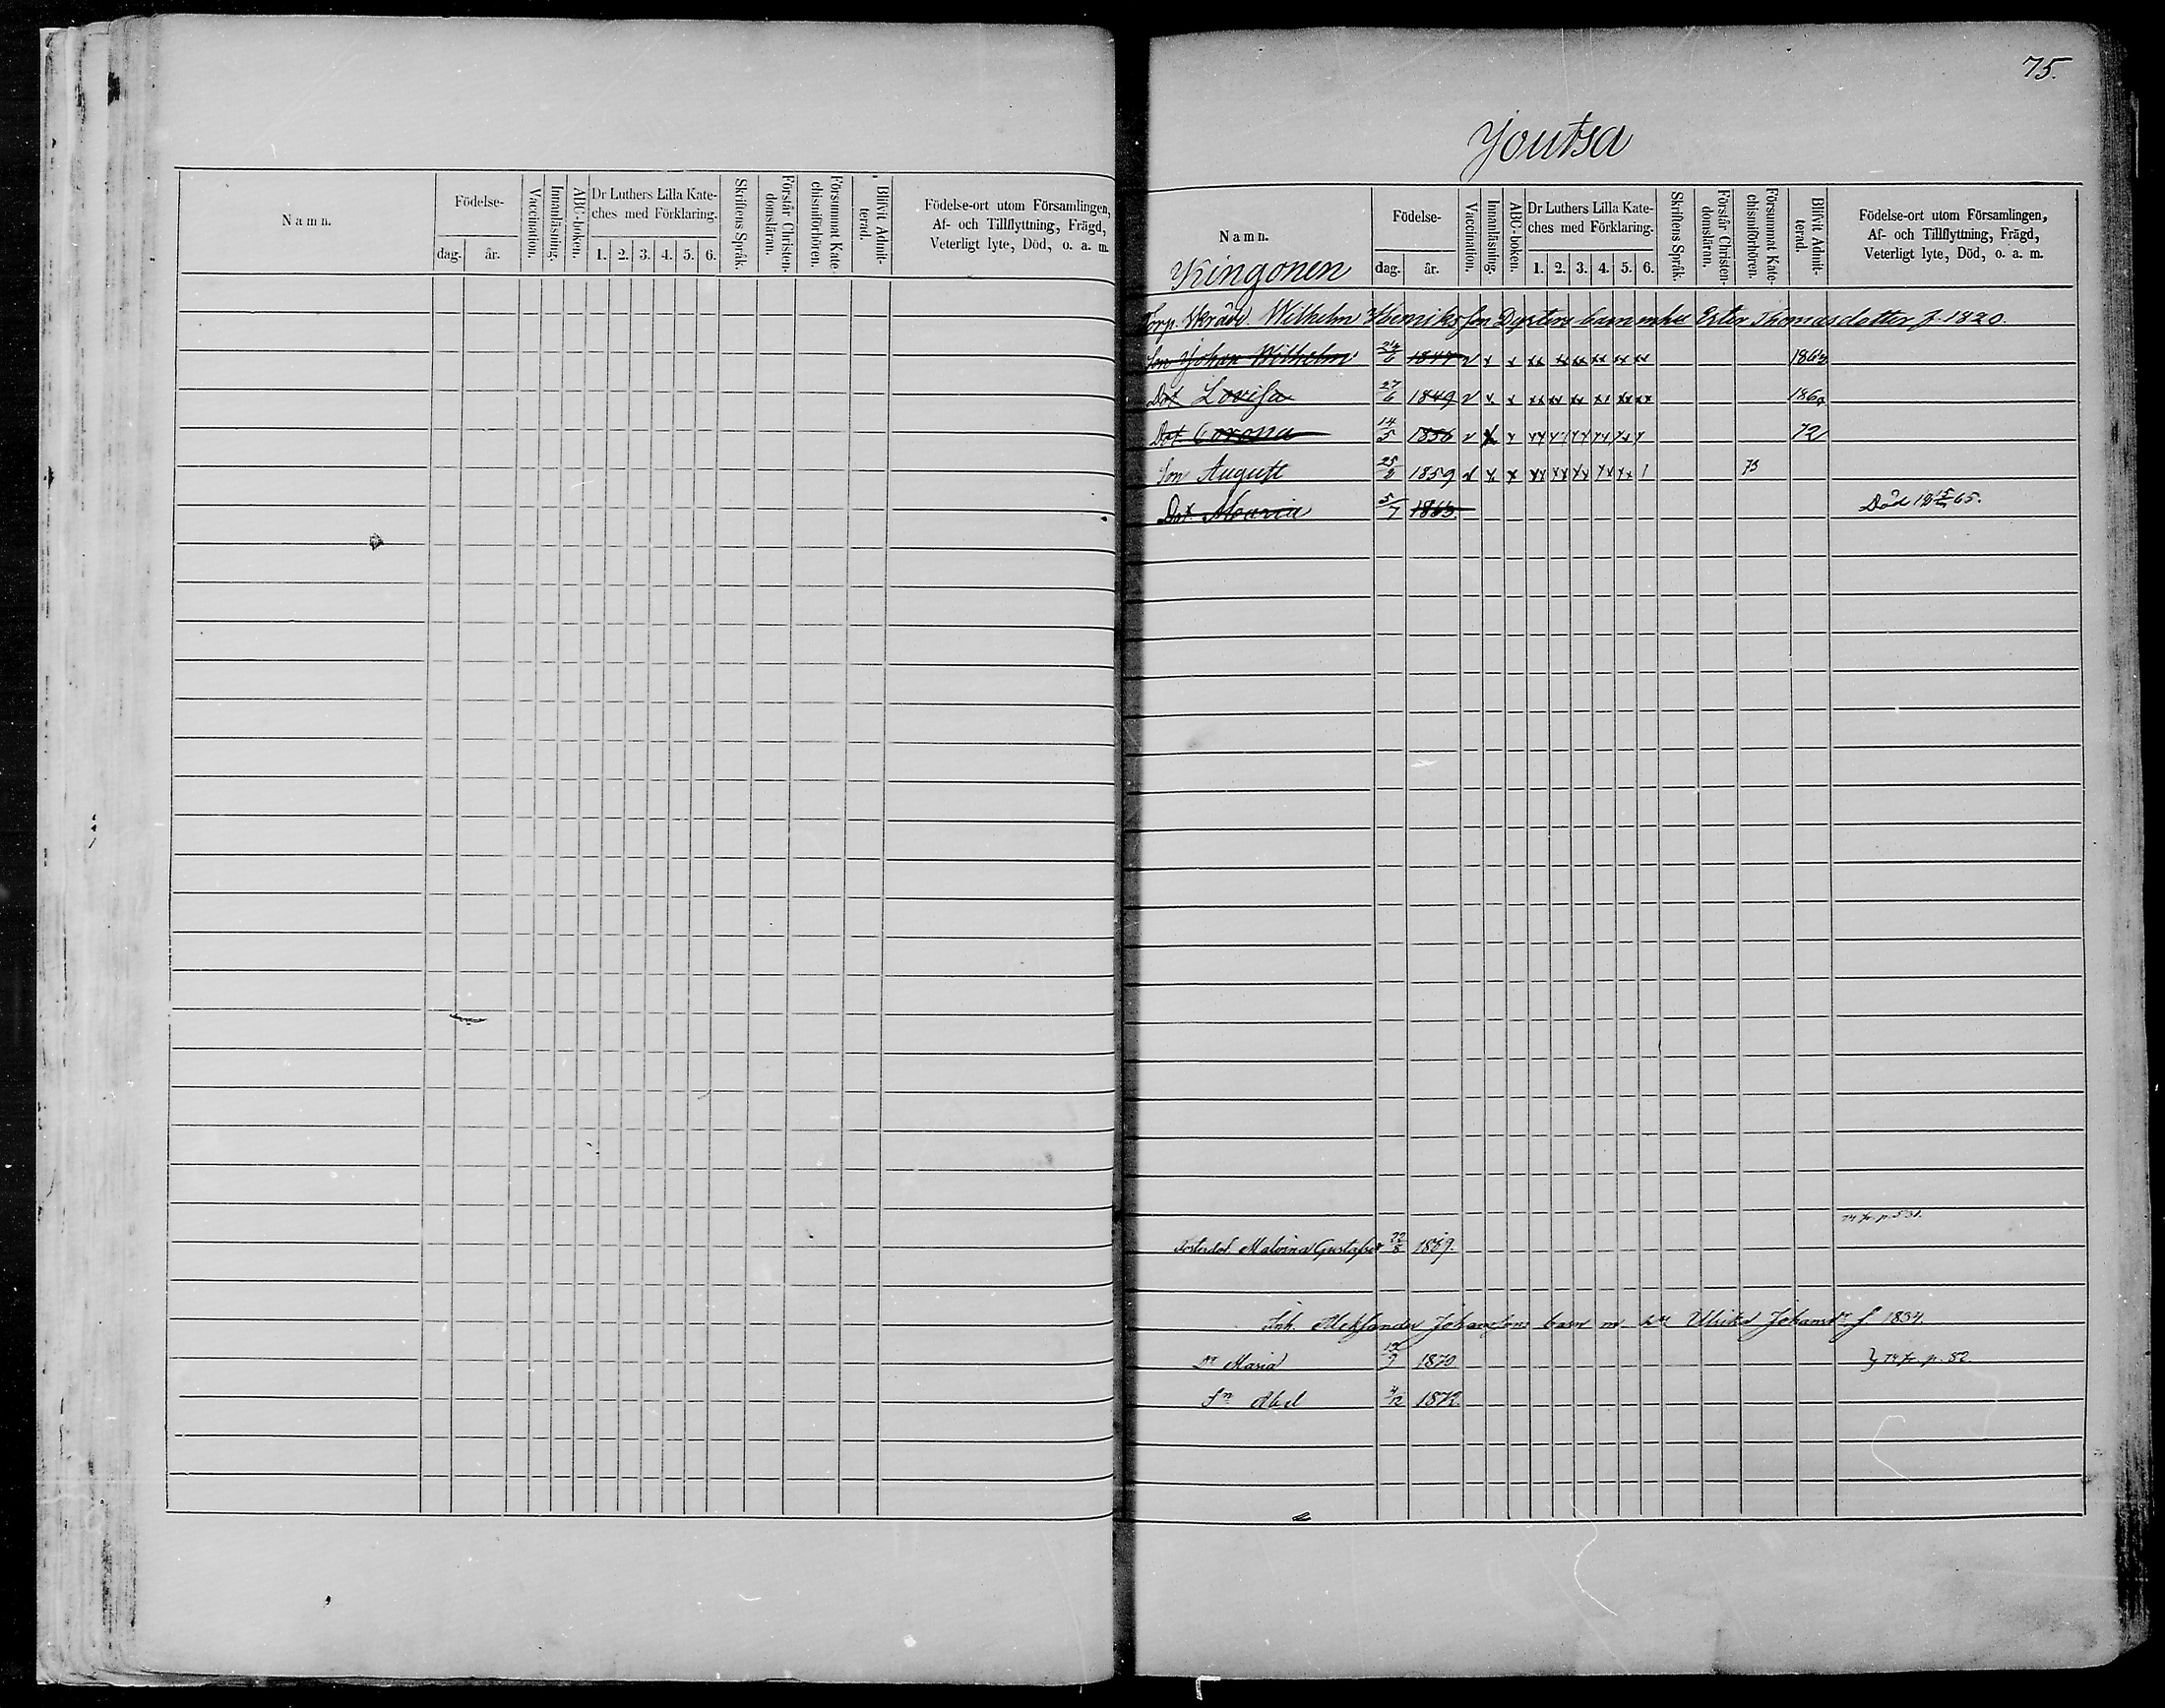 Namn.
Födelse-
dag.
år.
Vaccination.
Innanläsning.
ABC-boken.
Dr Luthers Lilla Kate-
ches med Förklaring.
1. 2. 3. 4. 5. 6.
Skriftens Språk.
Förstår Christen-
domsläran.
Försummat Kate-
chismiförhören.
Blifvit Admit-
terad.
Födelse-ort utom Församlingen,
Af- och Tillflyttning, Frägd,
Veterligt lyte, Död, o. a. m.
75.
Joutsa
Namn.
Kingonen
Födelse-
dag.
år.
Vaccination.
Innanläsning.
ABC-boken.
Dr Luthers Lilla Kate-
ches med Förklaring.
1. 2. 3. 4. 5. 6.
Skriftens Språk.
Förstår Christen-
domsläran.
Försummat Kate-
chismiförhören.
Blifvit Admit-
terad.
Födelse-ort utom Församlingen,
Af- och Tillflyttning, Frägd,
Veterligt lyte, Död, o. a. m.
Torp. Skrädd. Wilhelm Henriksson barn m hu Ester Thomasdotter f. 1820.
Son Johan Wilhelm 1847 v x x xx xx xx xx xx xx
Dot. Lovisa 27/6 1849 v x x xx xx xx xx xx xx
Dot. 14/5 1856 v x x xx xx xx xx xx x 72
Son August 1859 v x x xx xx xx xx xx 1 73
Dot. Maria 5/7 1863. Död 65.
74 fr. p. 531.
Fosterdot. Malvina Gustafsdr 22/8 1869.
Inh. Alexander Johanssons barn m hu Ulrika Johansdr f. 1834.
Dr Maria 1870 74 fr. p. 82.
Sn Abel 4/12 1872.